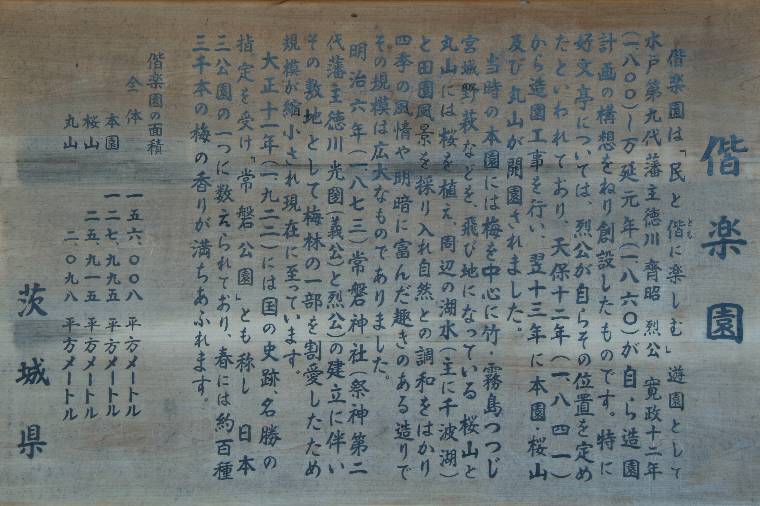 偕楽園
偕楽園は「民と偕に楽しむ」遊園として
とも
水戸第九代藩主徳川齊昭 烈公 寛政十二年
(一八〇〇)〜万延元年(一八六〇)が自ら造園
計画の構想をねり創設したものです。特に
好文亭については、烈公が自らその位置を定め
たといわれており、天保十二年(一八四一)
から造園工事を行い、翌十三年に本園・桜山
及び丸山が開園されました。
当時の本園には梅を中心に竹・霧島つつじ
宮城野萩などを、飛び地になっている桜山と
丸山には桜を植え、周辺の湖水(主に千波湖)
と田園風景を採り入れ自然との調和をはかり
四季の風情や明暗に富んだ趣きのある造りで
その規模は広大なものでありました。
明治六年(一八七三)常磐神社(祭神第二
代藩主徳川光圀(義公)と烈公)の建立に伴い
その敷地として梅林の一部を割愛したため
規模が縮小され現在に至っています。
大正十一年(一九二二)には国の史跡名勝の
指定を受け「常磐公園」とも称し 日本
三公園の一つに数えられており、春には約百種
三千本の梅の香りが満ちあふれます。
偕楽園の面積
全体 一五六、〇〇八 平方メートル
本園 一二七、九九五 平方メートル
桜山 二五、九一五 平方メートル
丸山 二、〇九八 平方メートル
茨城県